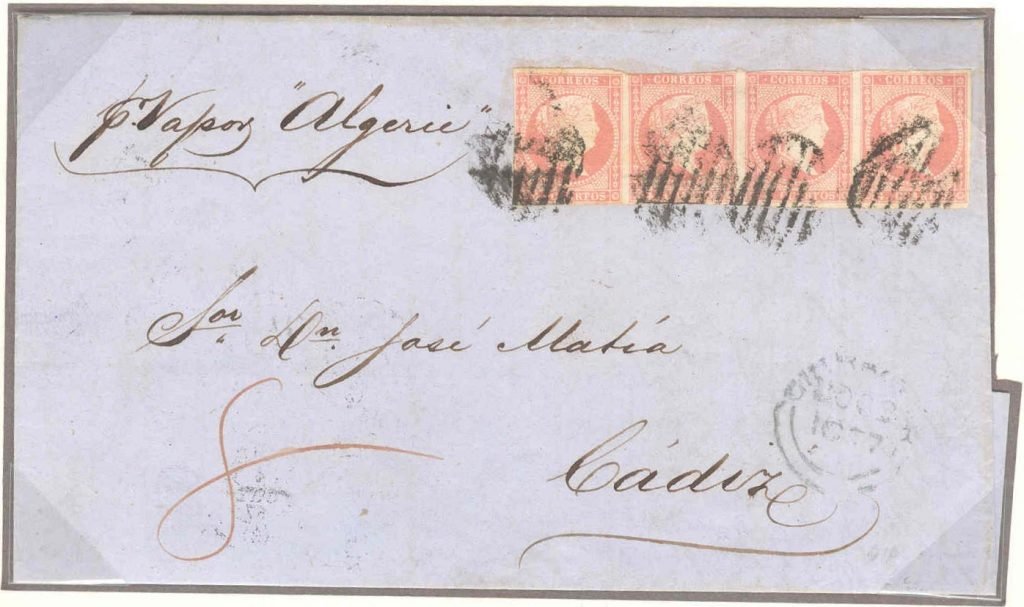 CORREOS CORREOS CORREOS CORREOS
p. Vapor "Algerie"
Sor. Dn. José Matía
Cádiz
8